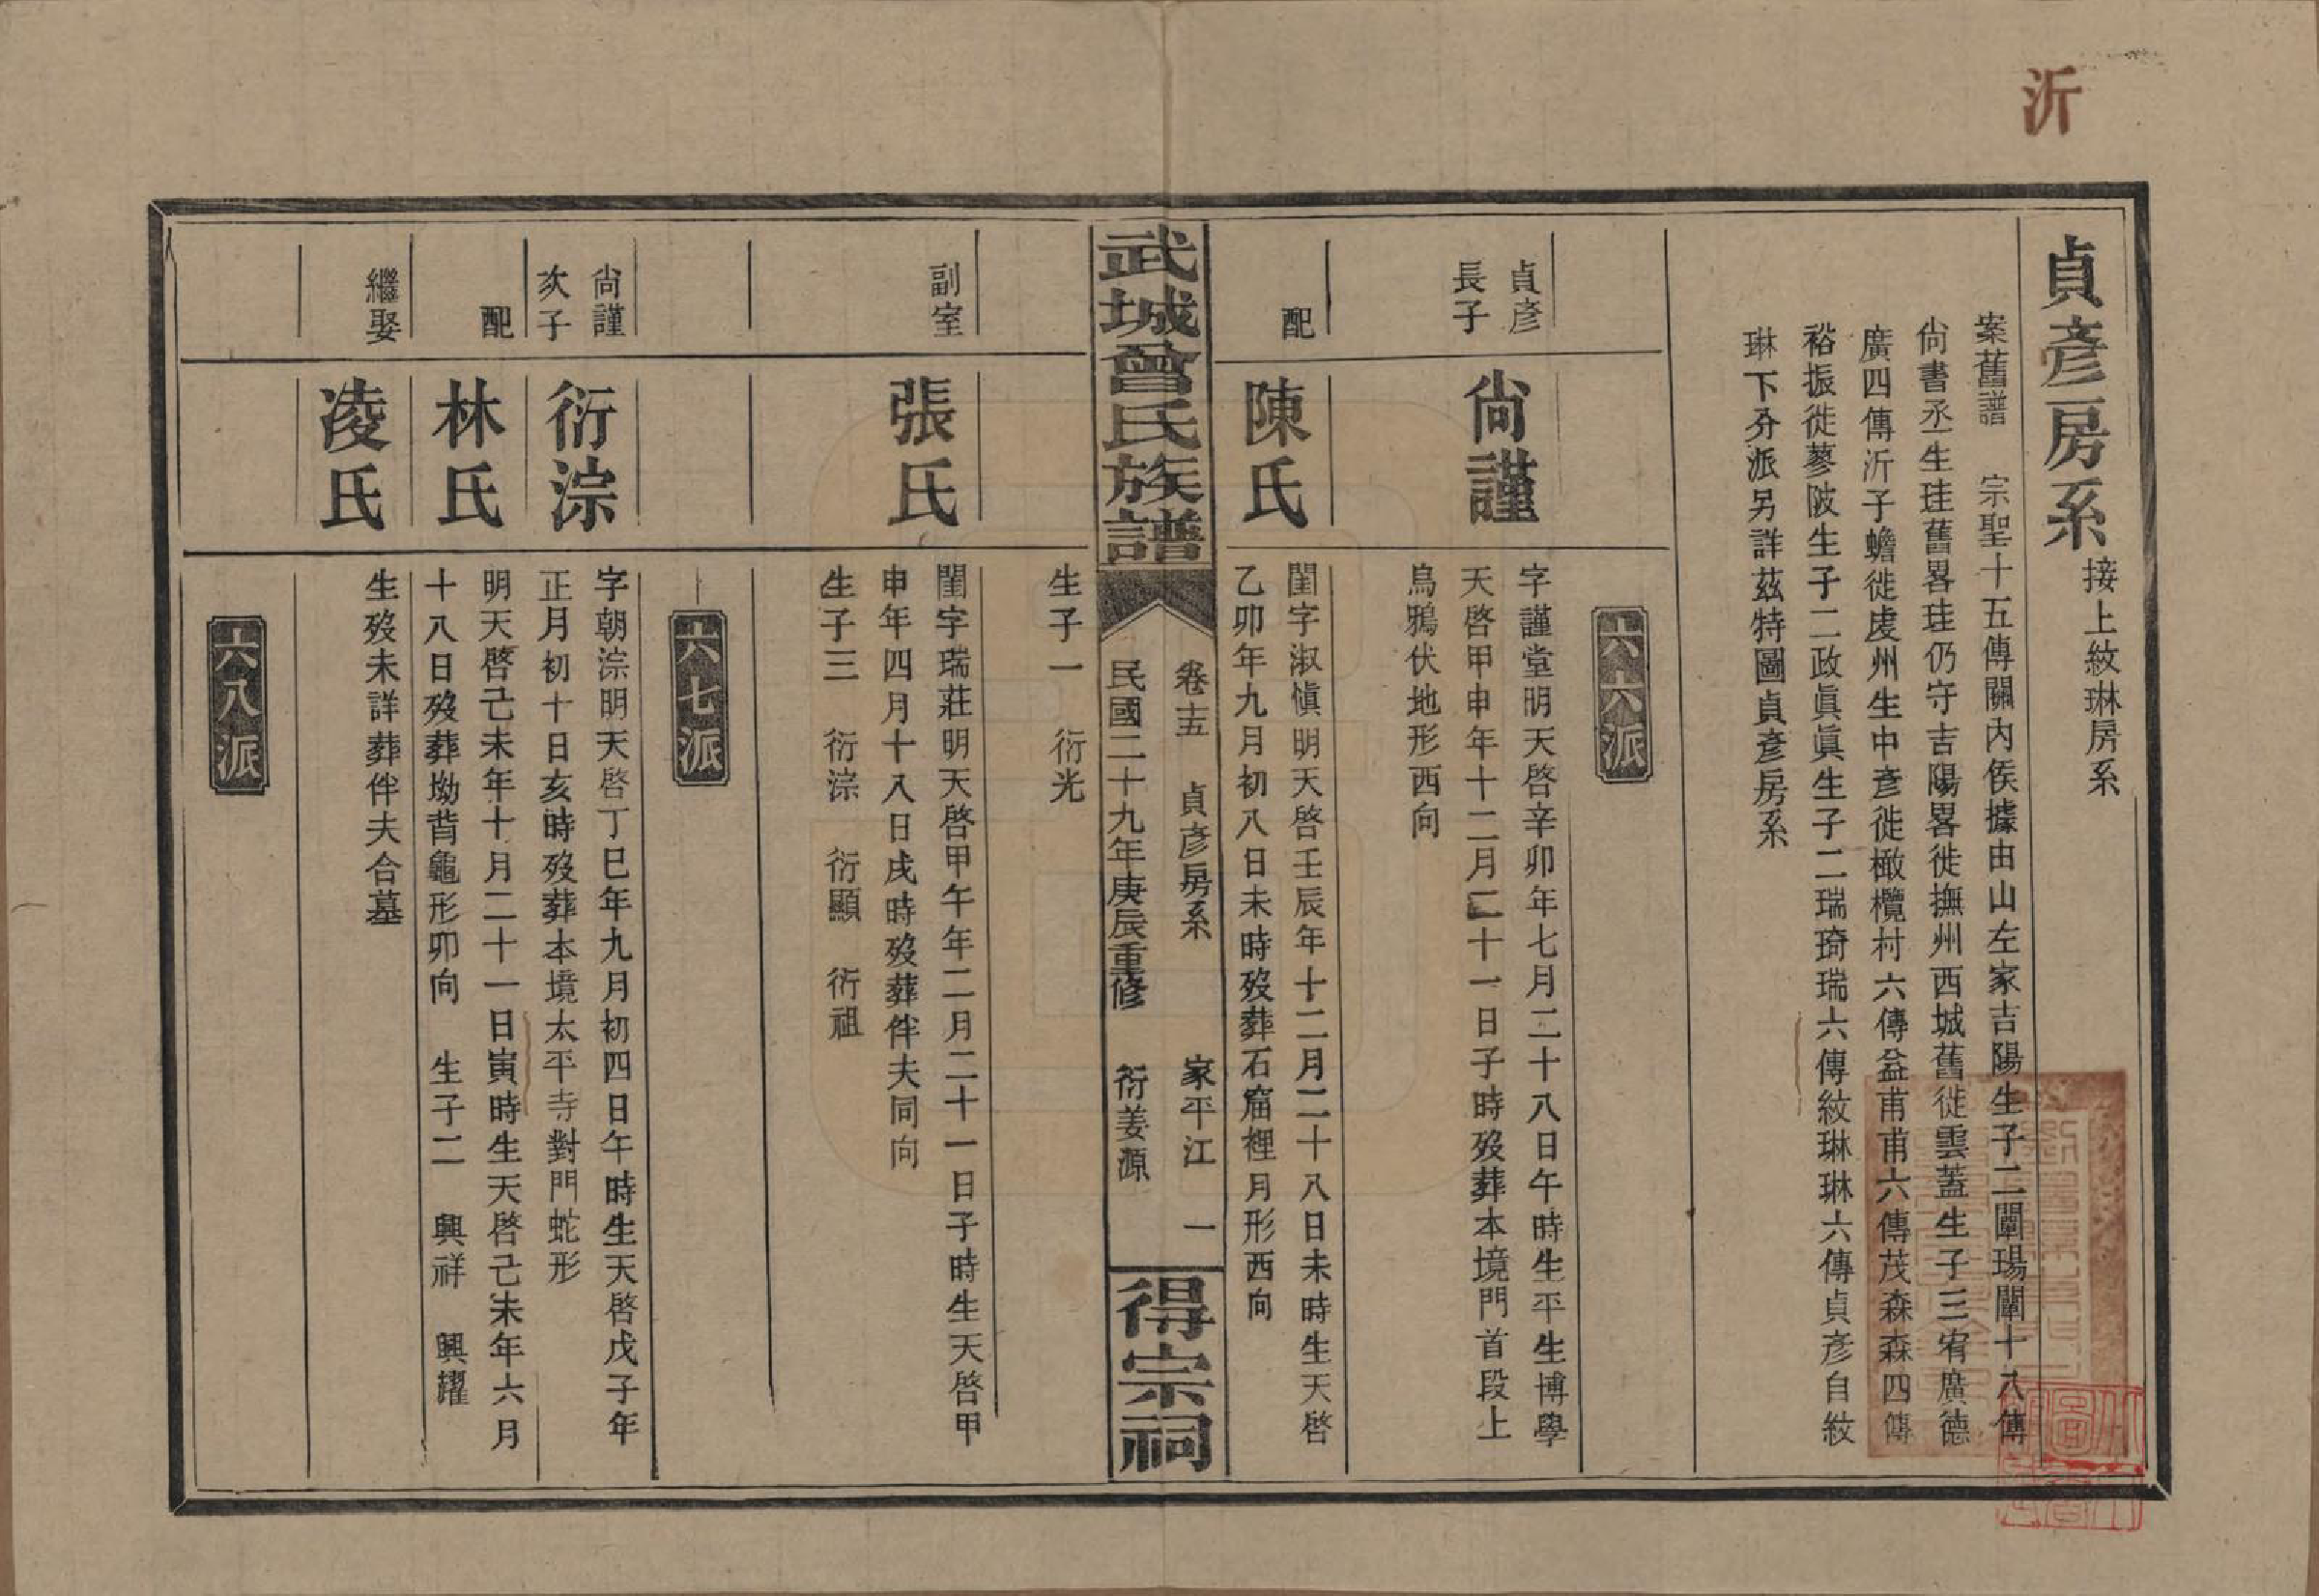 沂
貞彥房系 接上紋琳房系
案舊譜 宗聖十五傳關內侯據由山左家吉陽生子二闡瑒闡十八傳
尙書丞生珪舊畧珪仍守吉陽畧徙撫州西城舊徙雲蓋生子三宥廣德
廣四傳沂子蟾徙虔州生中彥徙橄欖村六傳益甫甫六傳茂森森四傳
裕振徙蓼陂生子二政眞眞生子二瑞琦瑞六傳紋琳琳六傳貞彥自紋
琳下分派另詳茲特圖貞彥房系
六六派
貞彥
長子
尙謹
字謹堂明天啓辛卯年七月二十八日午時生平生博學
天啓甲申年十二月二十一日子時歿葬本境門首段上
烏鴉伏地形西向
配
陳氏
閨字淑愼明天啓壬辰年十二月二十八日未時生天啓
乙卯年九月初八日未時歿葬石窟裡月形西向
武城曾氏族譜
卷十五 貞彥房系 家平江 一
民國二十九年庚辰重修 衍姜源
得宗祠
生子一 衍光
副室
張氏
閨字瑞莊明天啓甲午年二月二十一日子時生天啓甲
申年四月十八日戌時歿葬伴夫同向
生子三 衍淙 衍顯 衍祖
六七派
尙謹
次子
衍淙
字朝淙明天啓丁巳年九月初四日午時生天啓戊子年
正月初十日亥時歿葬本境太平寺對門蛇形
配
林氏
明天啓己未年十月二十一日寅時生天啓己未年六月
十八日歿葬坳背龜形卯向 生子二 興祥 興耀
繼娶
凌氏
生歿未詳葬伴夫合墓
六八派